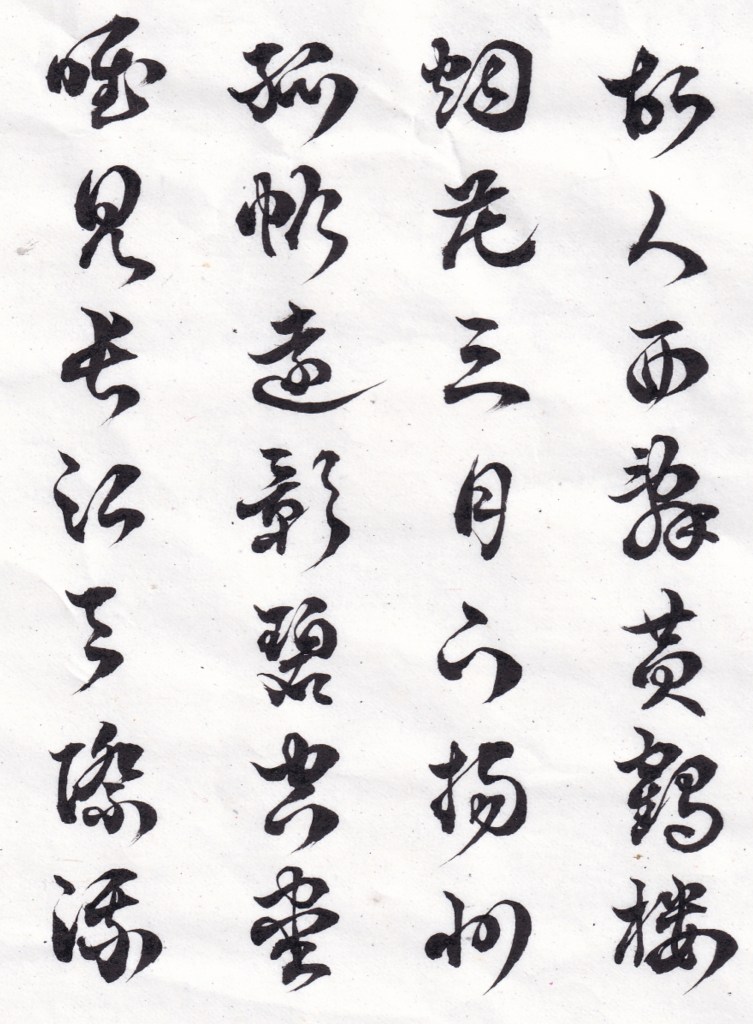 故人西辭黄鶴樓
烟花三月下揚州
孤帆遠影碧空盡
唯見長江天際流